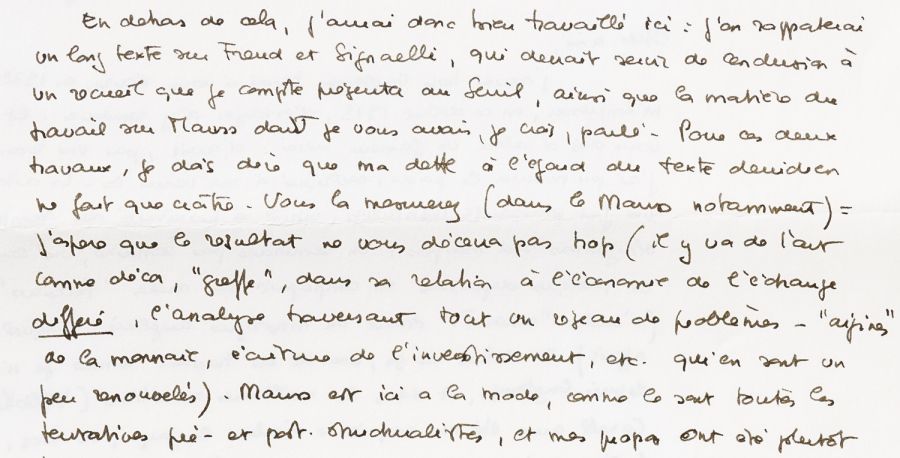 En dehors de cela, j'aurai donc bien travaillé ici : j'en rapporterai
un long texte sur Freud et Signorelli, qui devrait servir de conclusion à
un recueil que je compte présenter au Seuil, ainsi que la matière du
travail sur Mauss dont je vous avais, je crois, parlé. Pour ces deux
travaux, je dois dire que ma dette à l'égard du texte derridien
ne fait que croître. Vous la mesurerez (dans le Mauss notamment) :
j'espère que le résultat ne vous décevra pas trop (il y va de l'art
comme décor, "greffe", dans sa relation à l'économie de l'échange
différé, l'analyse traversant tout un réseau de problèmes - "origines"
de la monnaie, écriture de l'investissement, etc. qui en sont un
peu renouvelés). Mauss est ici à la mode, comme le sont toutes les
tentatives pré- et post-structuralistes, et mes propos ont été plutôt